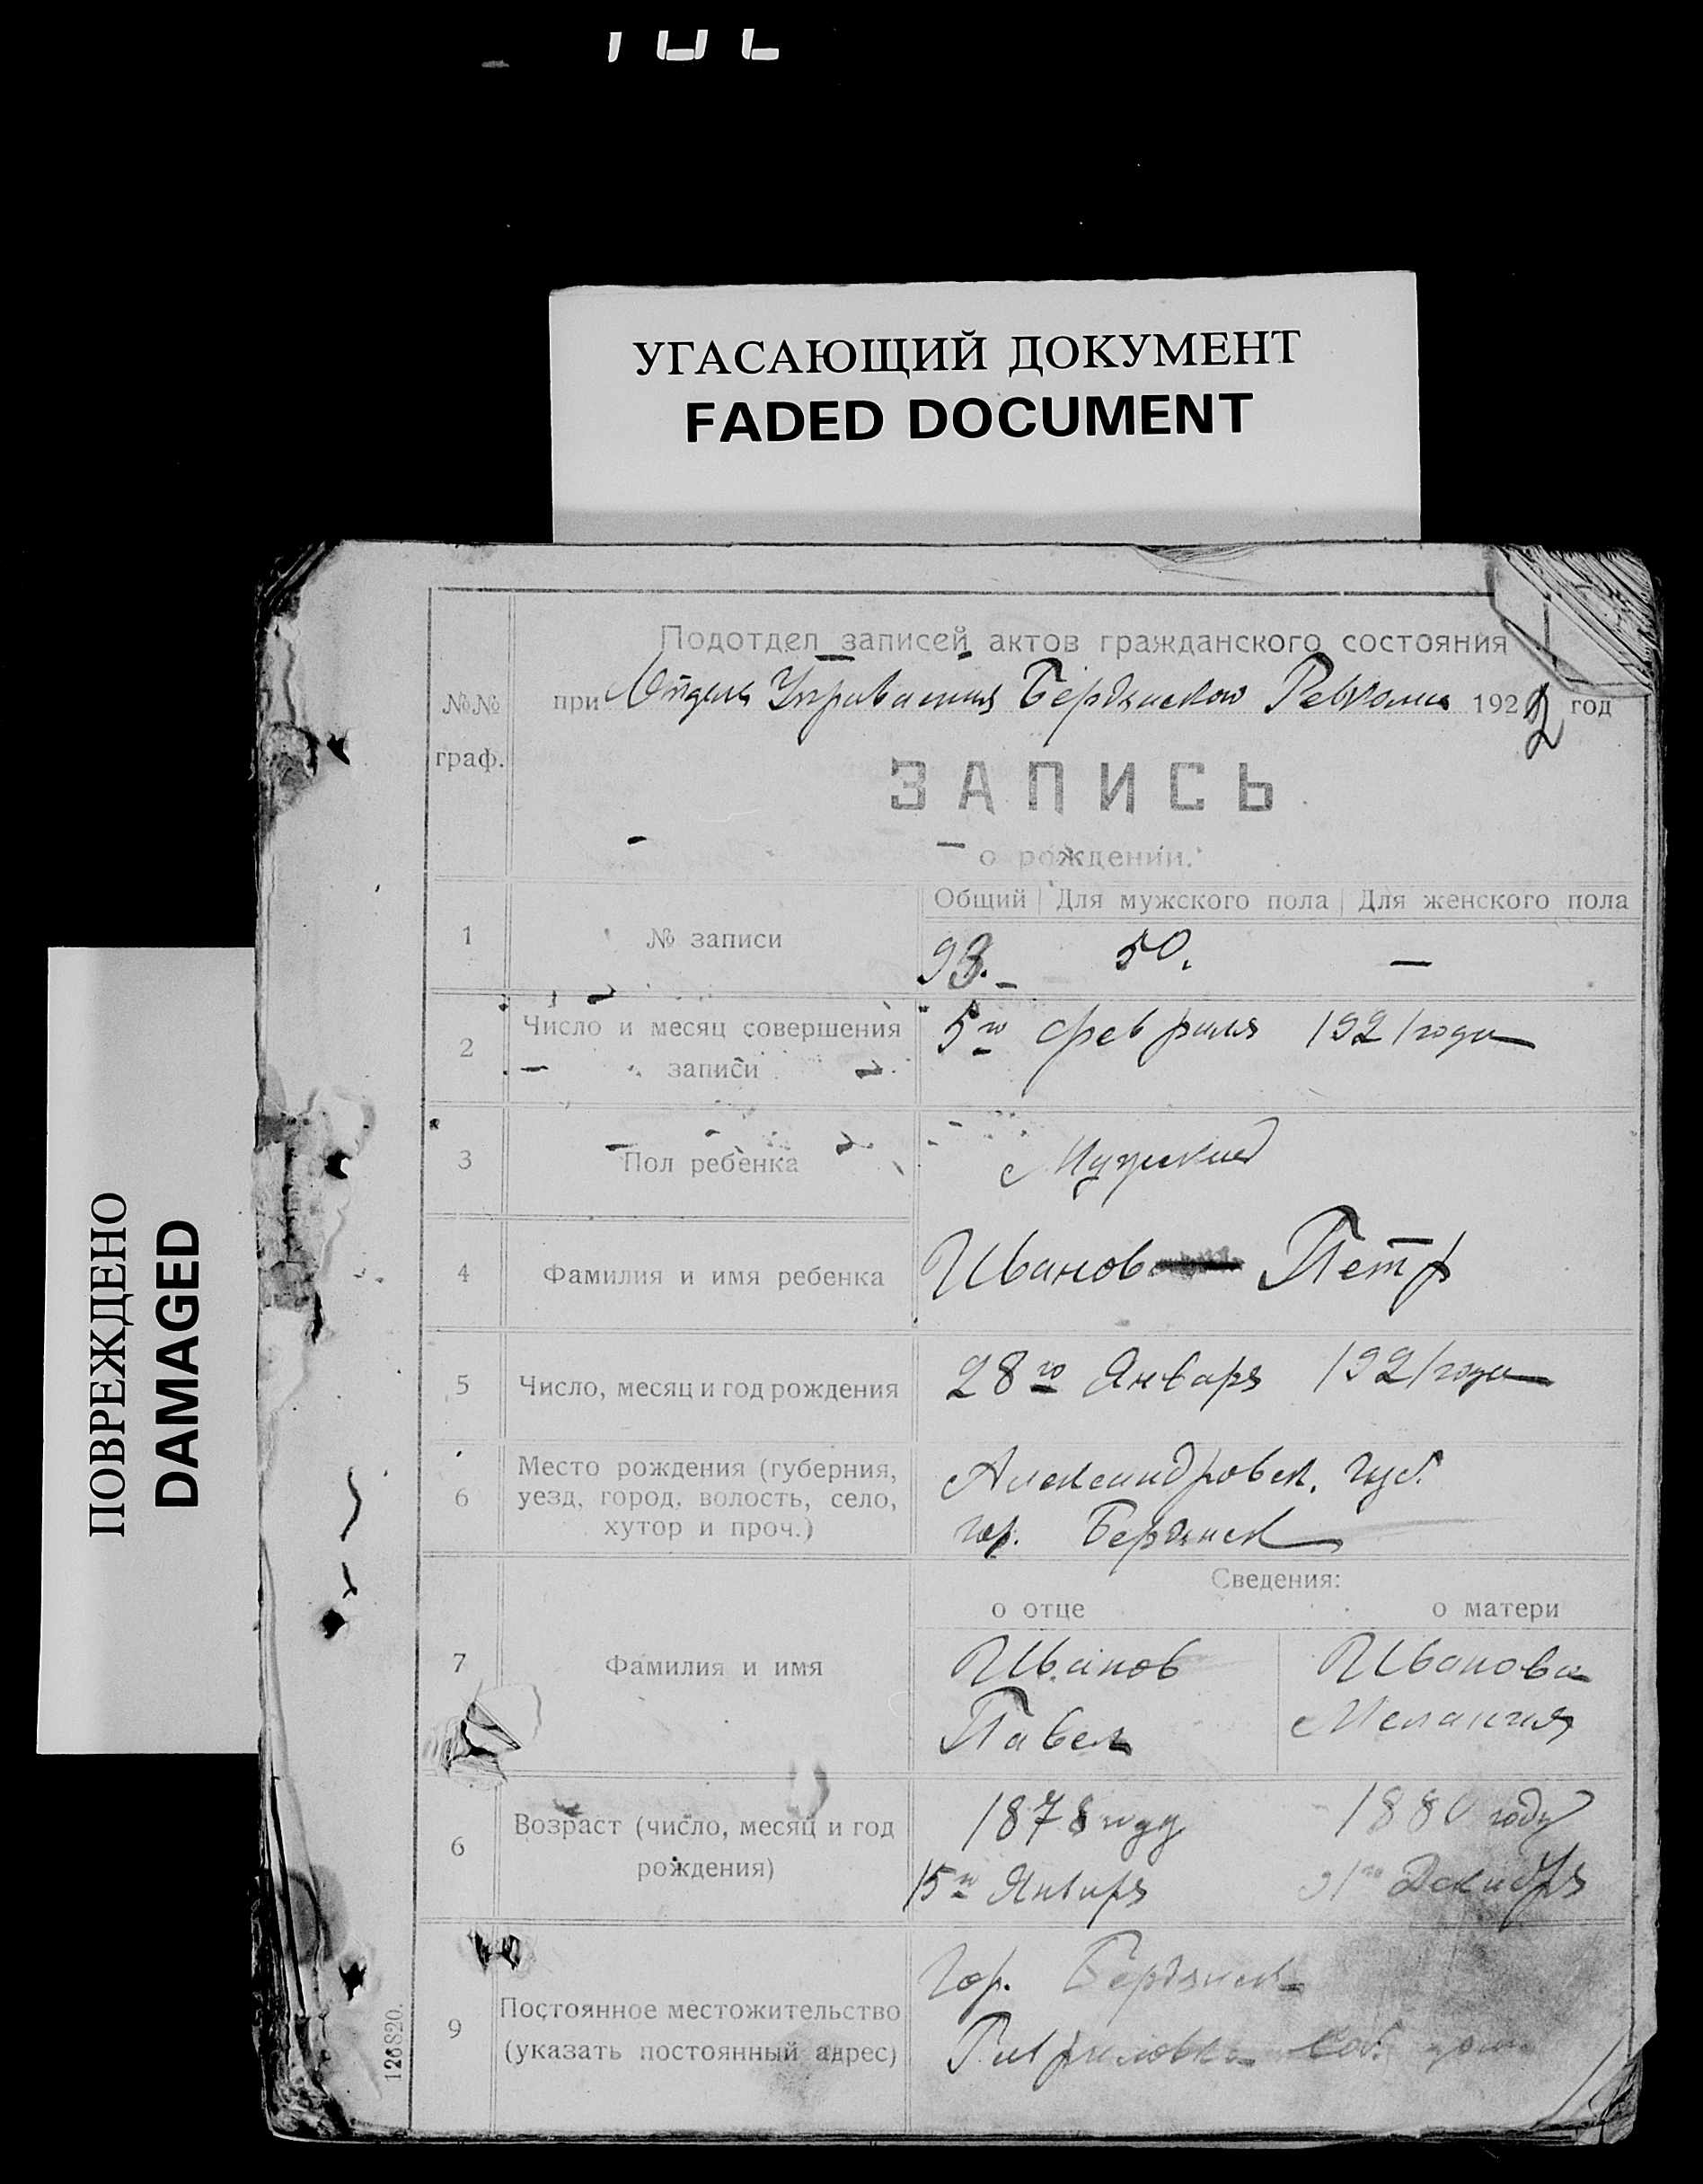 УГАСАЮЩИЙ ДОКУМЕНТ
FADED DOCUMENT
ПОВРЕЖДЕНО
DAMAGED
Подотдел записей актов гражданского состояния
№№ граф.
при Отделе Управления Бердянского Ревкома 1922 год
ЗАПИСЬ
о рождении.
Общий Для мужского пола Для женского пола
1 № записи 93. 50. —
2 Число и месяц совершения записи 5го февраля 1921 года
3 Пол ребенка Мужский
4 Фамилия и имя ребенка Иванов Петр
5 Число, месяц и год рождения 28го Января 1921 года
6 Место рождения (губерния, Александровск. губ.
уезд, город, волость, село,
хутор и проч.) гор. Бердянск
Сведения:
о отце о матери
7 Фамилия и имя Иванов Иванова
Павел Мелания
6 Возраст (число, месяц и год 1878 году 1880 году
рождения) 15го Января 31го Декабря
9 Гор. Бердянск
Постоянное местожительство
(указать постоянный адрес) соб. дом
126820.